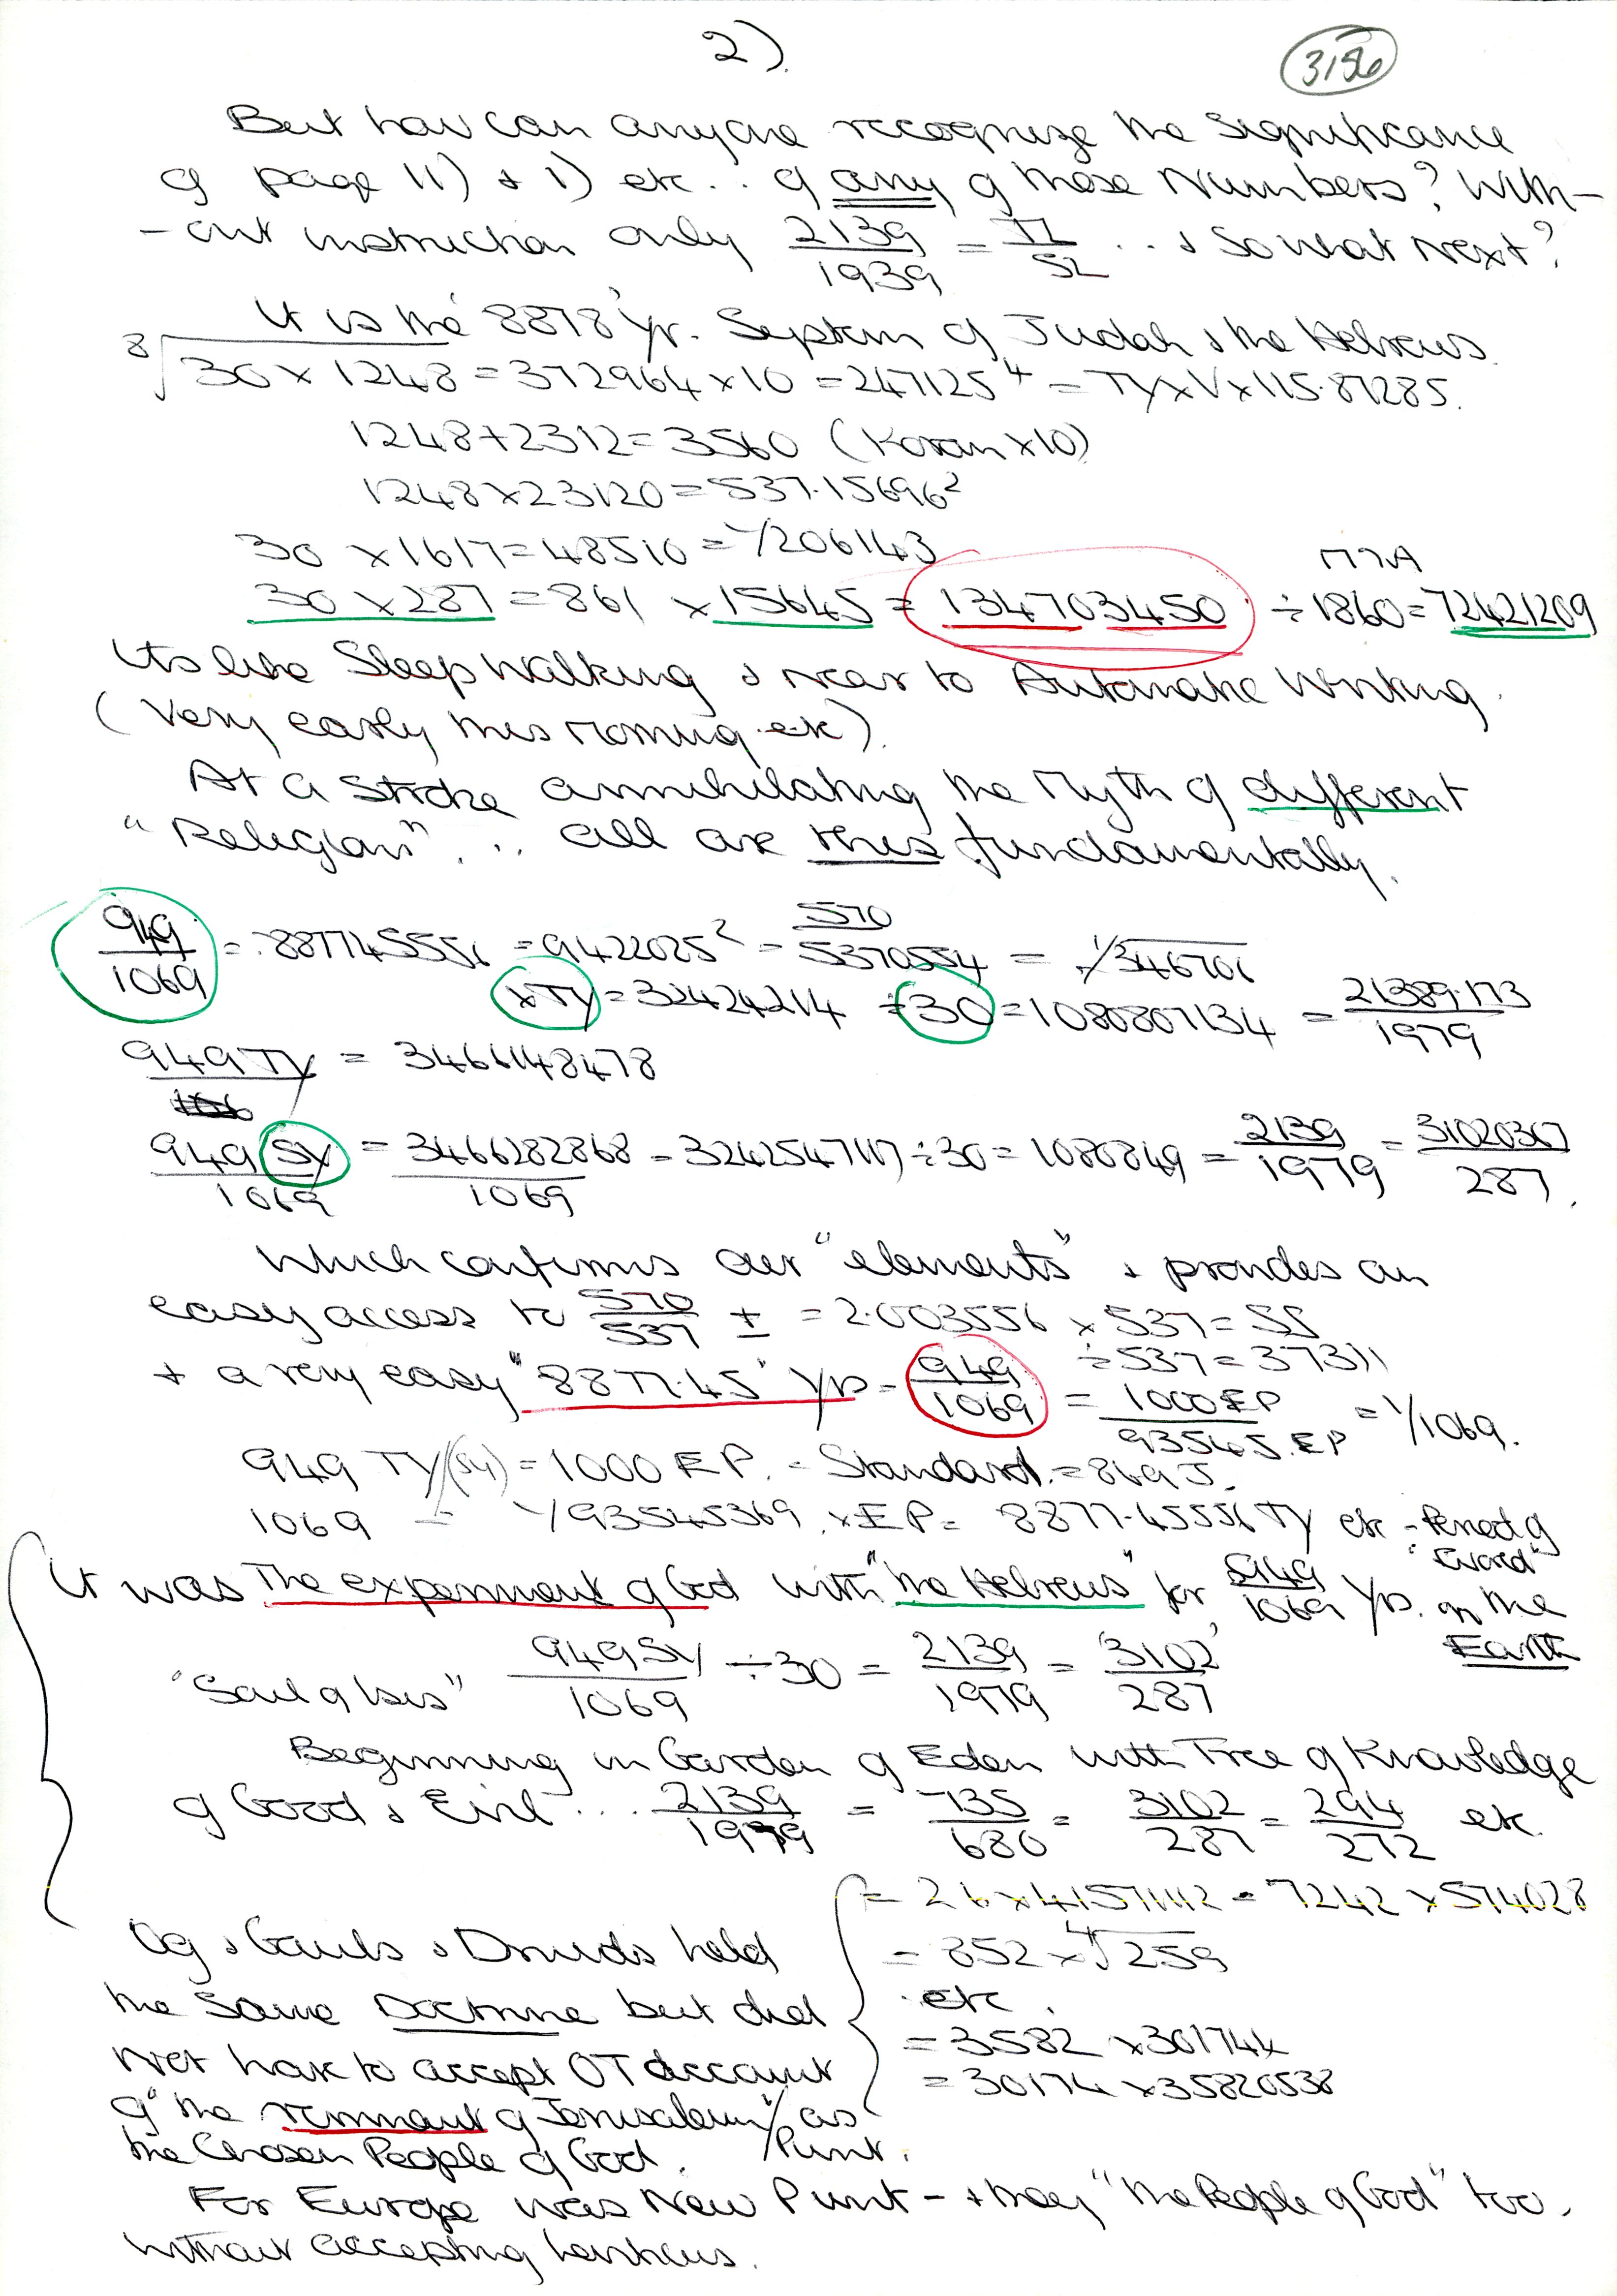 2).
3156
But how can anyone recognize the Significance
of page 11) & 1) etc.. of any of these Numbers? With-
-out instruction only 2139/1939 = 77/52 ... & So what next?
It is the '8878' yr. System of Judah & the Hebrews.
8√30 x 1248 = 372964 x 10 = 247125⁴ = TY x V x 115.87285.
1248 + 2312 = 3560 (Koran x 10)
1248 x 23120 = 537.15696²
30 x 1617 = 48510 = 1/206143
30 x 287 = 861 x 15645 = 134703450 ÷ 1860 = 72421209
Its like Sleep Walking & near to Automatic Writing.
(Very early this morning etc).
At a Stroke annihilating the Myth of different
"Religion"... all are this fundamentally.
949/1069 = .887745556 = 9422025² = 570/5370554 = 1/346706
x TY = 32424214 ÷ 30 = 1080807134 = 21389.173/1979
949 TY = 3466148478
949 SY/1069 = 3466282868/1069 = 3242547117 ÷ 30 = 1080849 = 2139/1979 = 31020367/287.
Which confirms our "elements" & provides an
easy access to 570/537 ± = 2.003556 x 537 = SS
÷ 537 = 37311
+ a very easy "8877.45" Yrs = 949/1069 = 1000 EP/93545.EP = 1/1069.
949 TY/(SY) = 1000 EP. = Standard. = 869 J.
1069 = 1/93545369 x EP = 8877.45556 TY etc - Period of
"Sword"
It was The experiment of God with "the Hebrews" for 949/1069 Yrs. on the
Earth
"Sail of Isis" 949 SY/1069 ÷ 30 = 2139/1979 = 3102/287
Beginning in Garden of Eden with Tree of Knowledge
of Good & Evil ... 2139/1979 = 735/680 = 3102/287 = 294/272 etc.
= 26 x 41571112 = 7242 x 574028
Og & Gauls & Druids held
= 852 x ⁴√259
the Same Doctrine but did
etc.
not have to accept OT account
= 3582 x 301744
= 30174 x 35820538
of "the remnant of Jerusalem"/Punt as
the Chosen People of God.
For Europe was New Punt - & they "the People of God" too.
without accepting Leviticus.